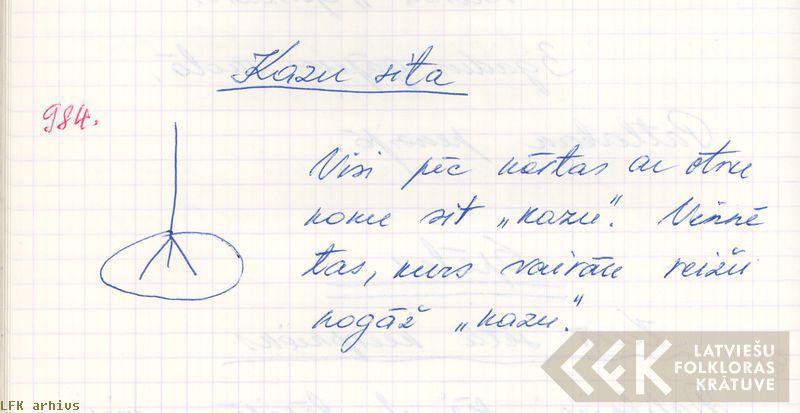 Kazu sita
984.
Visi pēc kārtas ar otru
koku sit „kazu". Vinnē
tas, kurš vairāk reižu
nogāž „kazu".
LATVIEŠU
FOLKLORAS
KRĀTUVE
LFK arhivs